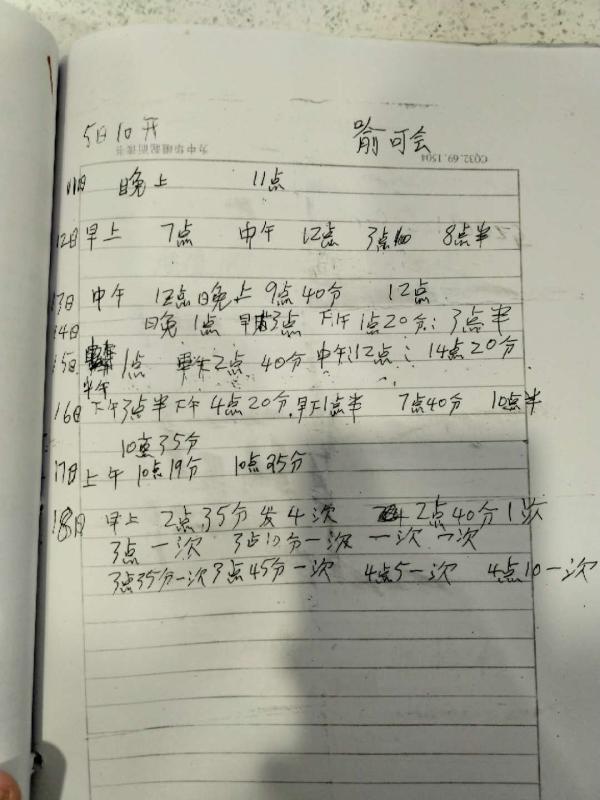 5日10开 喻可会
为中华崛起而读书 CQ32.69.1504
11日 晚上 11点
12日 早上 7点 中午 12点 3点 8点半
13日 中午 12点 晚上 9点40分 12点
14日 晚 1点 早 3点 下午1点20分: 3点半
15日 1点 2点 40分 中午:12点: 14点20分
半午
16日 下午3点半 下午 4点20分. 早上1点半 7点40分 10点半
10点35分
17日 上午 10点19分 10点25分
18日 早上 2点35分发4次 2点40分1次
3点一次 3点10分一次 一次 一次
3点35分一次 3点45分一次 4点5一次 4点10一次